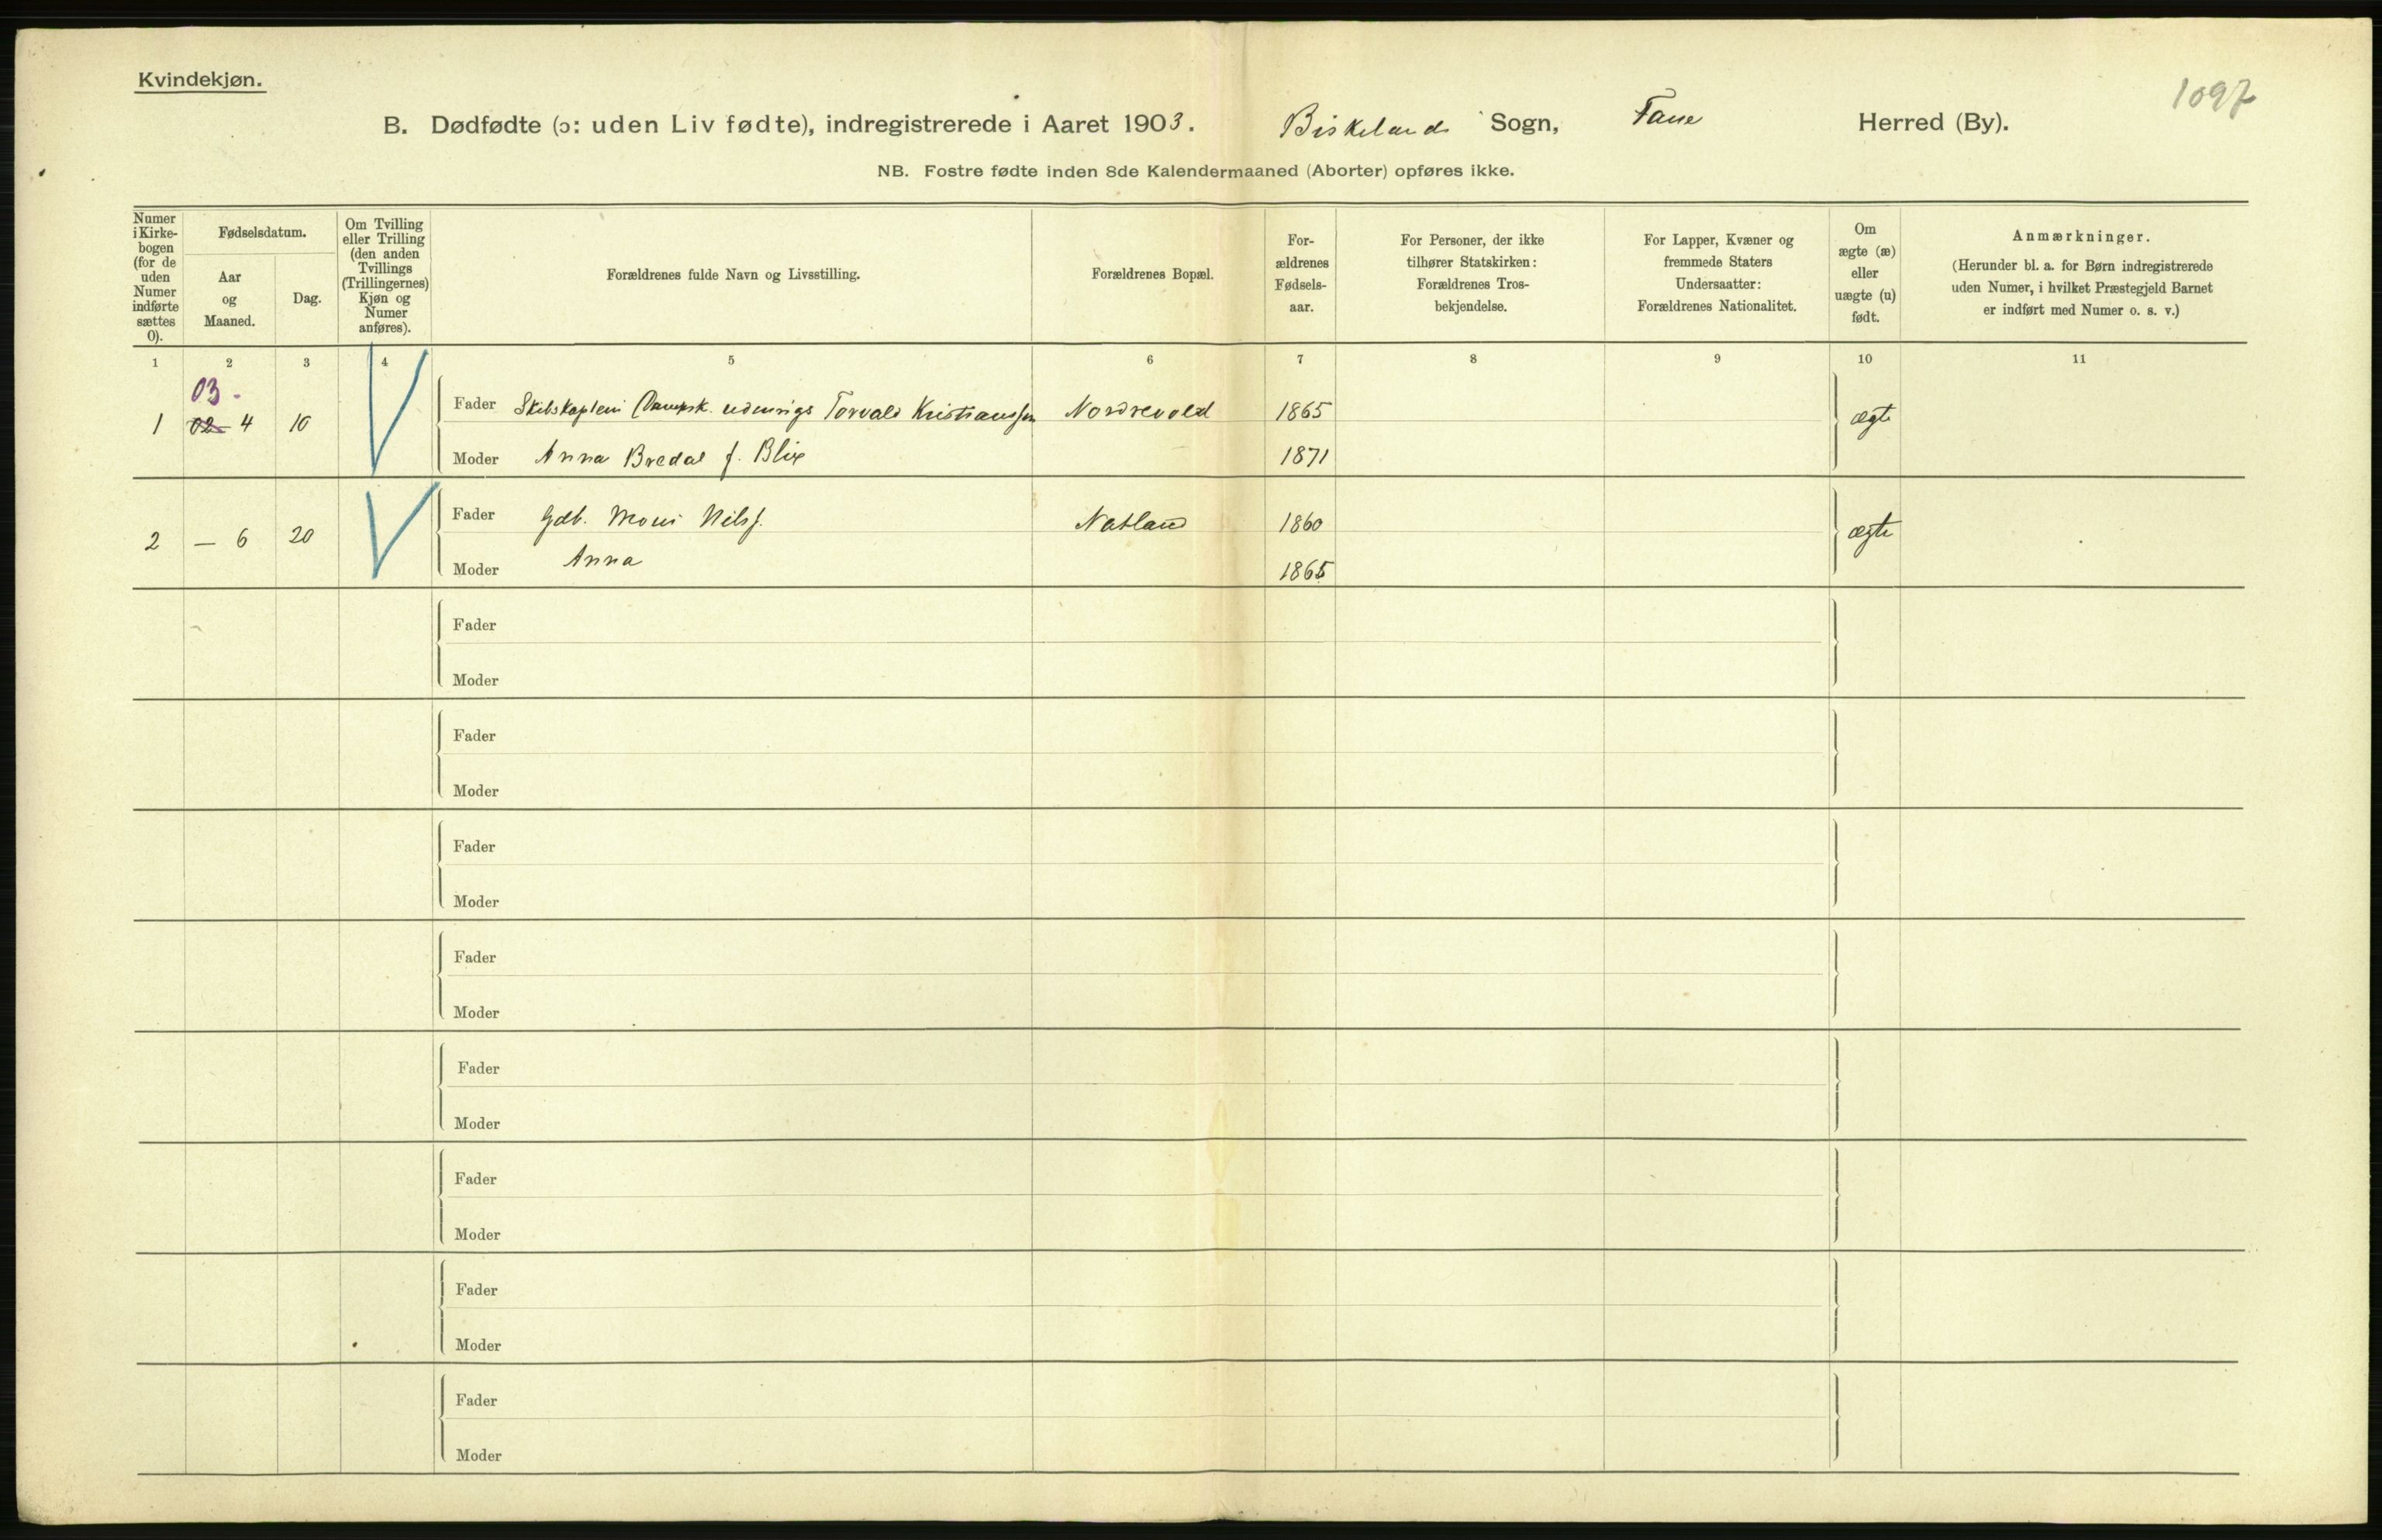 Kvindekjøn.
1097
B. Dødfødte (ɔ: uden Liv fødte), indregistrerede i Aaret 1903. Birkelands Sogn, Fane Herred (By).
NB. Fostre fødte inden 8de Kalendermaaned (Aborter) opføres ikke.
Numer i Kirke-bogen (for de uden Numer indførte sættes 0).
Fødselsdatum.
Aar og Maaned.
Dag.
Om Tvilling eller Trilling (den anden Tvillings (Trillingernes) Kjøn og Numer anføres).
Forældrenes fulde Navn og Livsstilling.
Forældrenes Bopæl.
For-ældrenes Fødsels-aar.
For Personer, der ikke tilhører Statskirken: Forældrenes Tros-bekjendelse.
For Lapper, Kvæner og fremmede Staters Undersaatter: Forældrenes Nationalitet.
Om ægte (æ) eller uægte (u) født.
Anmærkninger.
(Herunder bl. a. for Børn indregistrerede uden Numer, i hvilket Præstegjeld Barnet er indført med Numer o. s. v.)
1 2 3 4 5 6 7 8 9 10 11
03 -
1 02 4 10 Fader Skibskaptein (Dampsk. udenrigs Torvald Kristianssen Nordrevold 1865 ægte
Moder Anna Bredal f. Blix 1871
2 — 6 20 Fader Gdb. Mons Nilss. Natland 1860 ægte
Moder Anna 1865
Fader
Moder
Fader
Moder
Fader
Moder
Fader
Moder
Fader
Moder
Fader
Moder
Fader
Moder
Fader
Moder